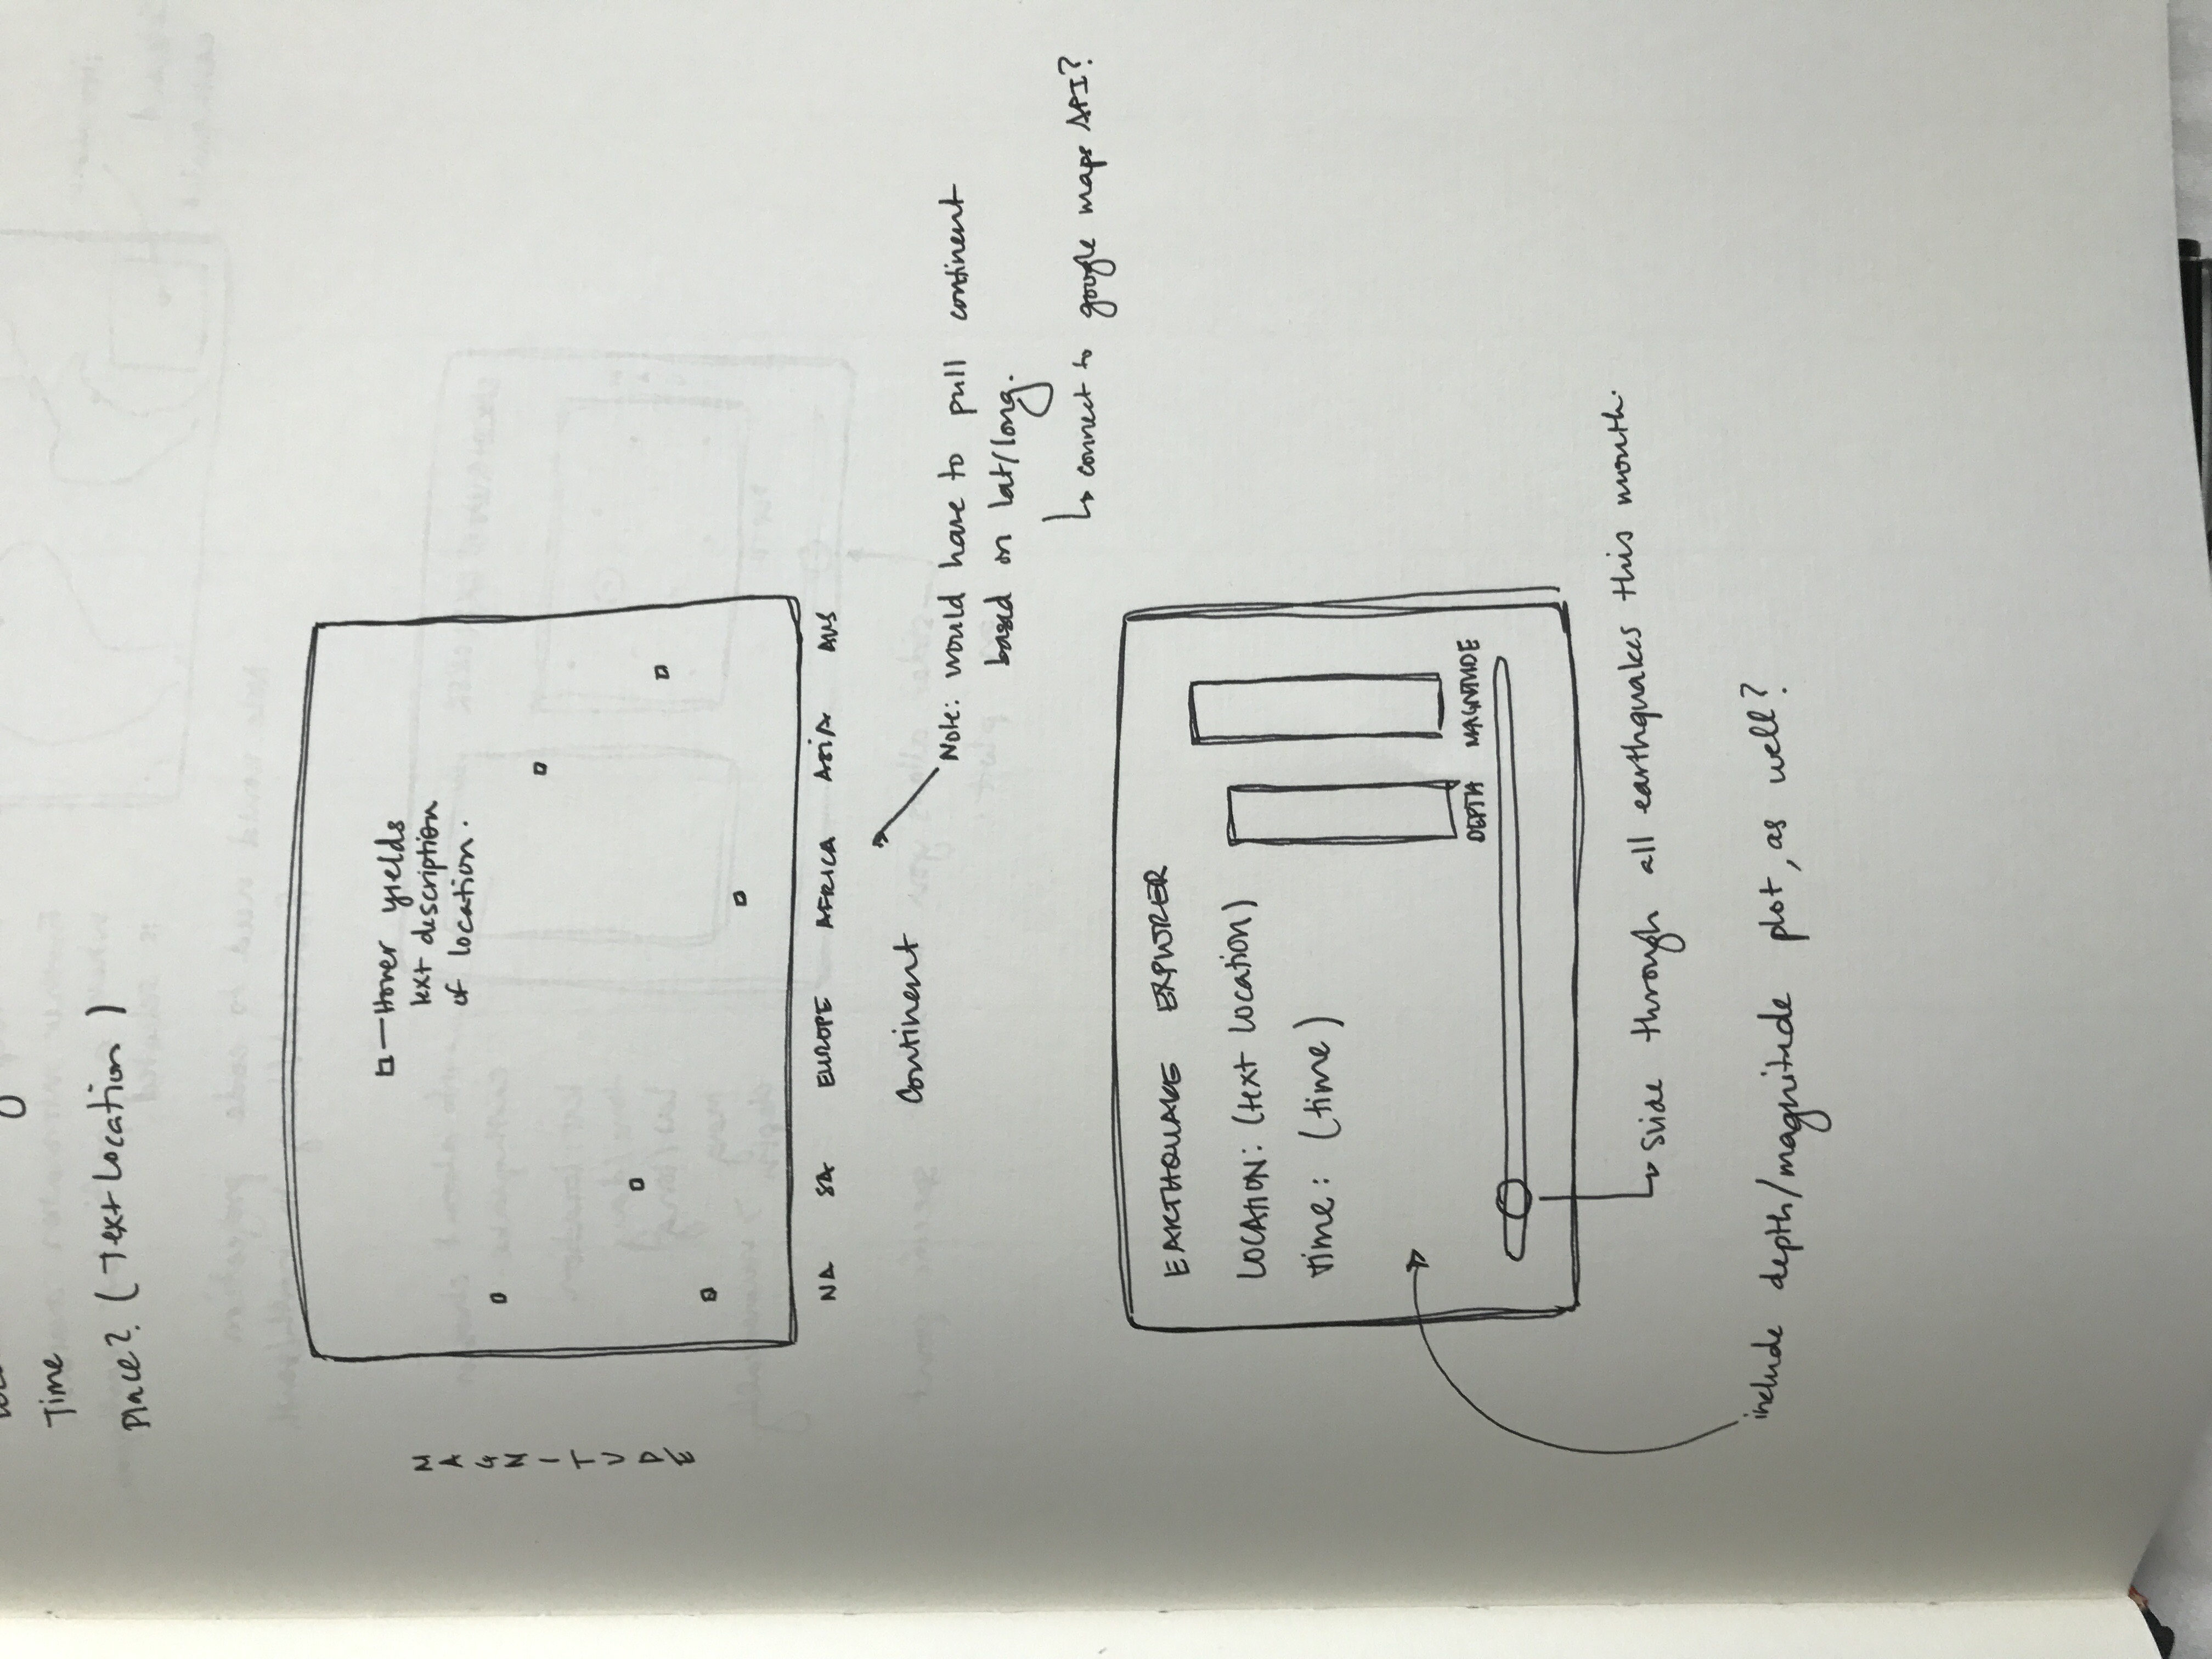 Time
Place? (Text Location)
MAGNITUDE
Hover yields
text description
of location.
NA SA EUROPE AFRICA ASIA AUS
Continent
Note: would have to pull continent
based on lat/long.
connect to google maps API?
EARTHQUAKE EXPLORER
LOCATION: (text location)
Time: (time)
DEPTH MAGNITUDE
Slide through all earthquakes this month.
include depth/magnitude plot, as well?